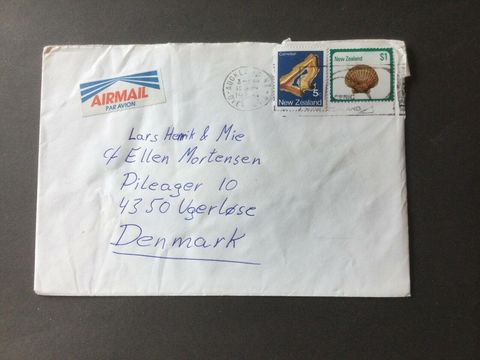 AIRMAIL
PAR AVION
Carnelian
5c
New Zealand
New Zealand
$1
Lars Henrik & Mie
c/ Ellen Mortensen
Pileager 10
4350 Ugerløse
Denmark